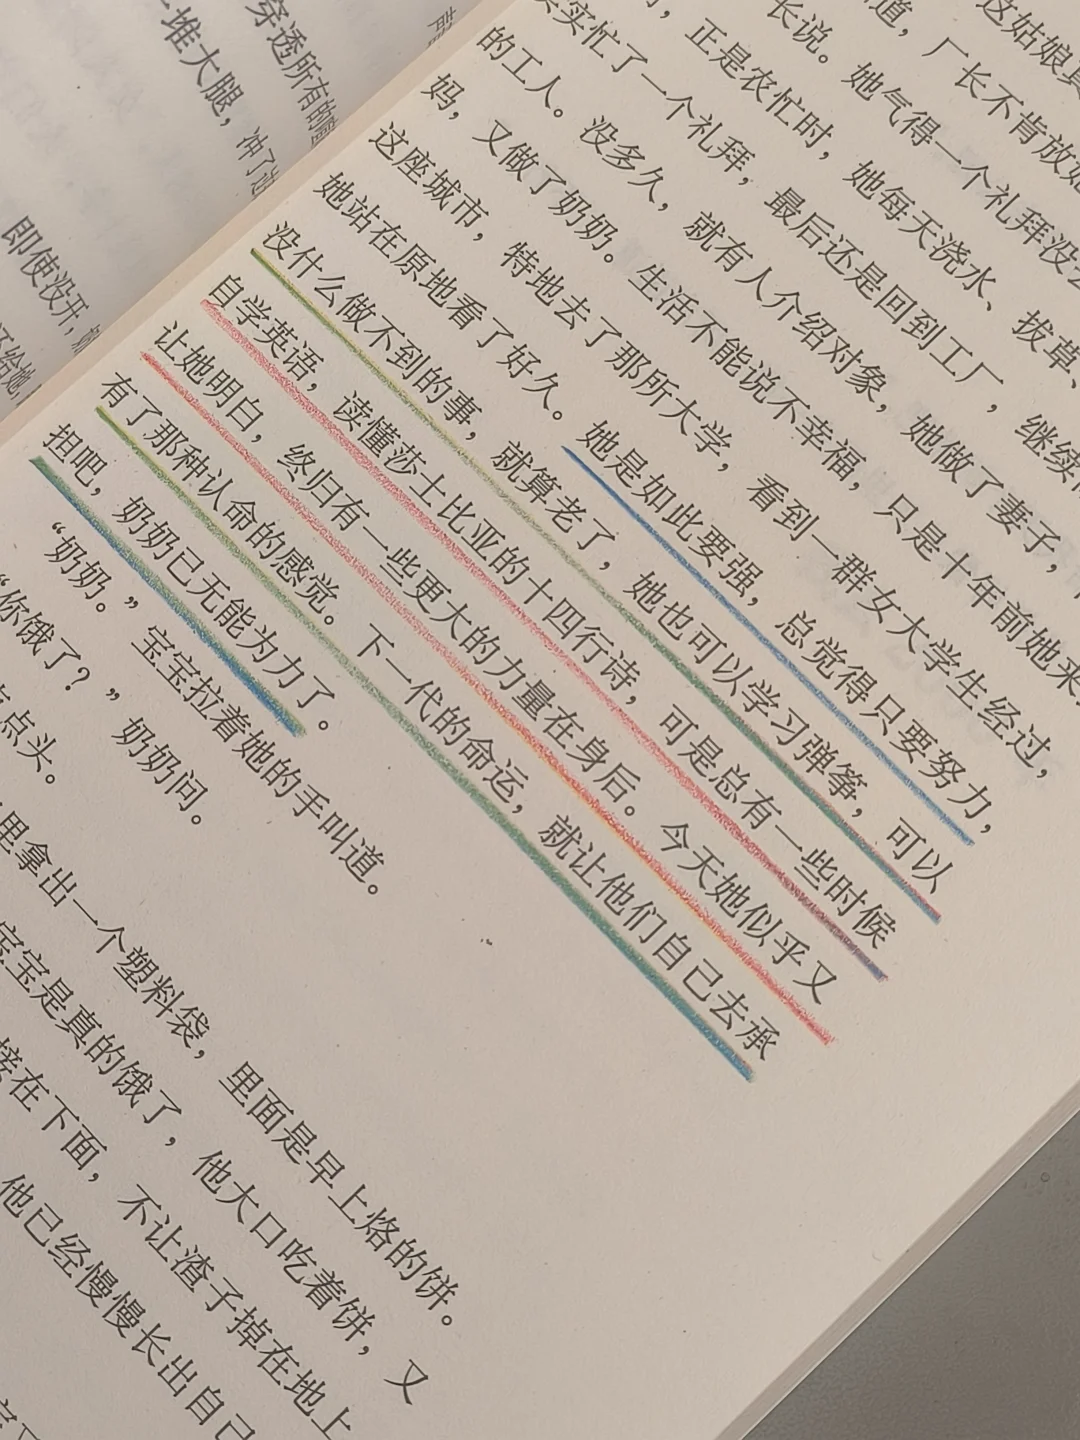 穿透所有的
堆大腿，冲了过
即使没开，
还给她，
这姑娘真
道，厂长不肯放她
长说。她气得一个礼拜没
正是农忙时，她每天浇水、拔草、
实实忙了一个礼拜，最后还是回到工厂，继续
的工人。没多久，就有人介绍对象，她做了妻子，
妈，又做了奶奶。生活不能说不幸福，只是十年前她来
这座城市，特地去了那所大学，看到一群女大学生经过，
她站在原地看了好久。她是如此要强，总觉得只要努力，
没什么做不到的事，就算老了，她也可以学习弹筝，可以
自学英语，读懂莎士比亚的十四行诗，可是总有一些时候
让她明白，终归有一些更大的力量在身后。今天她似乎又
有了那种认命的感觉。下一代的命运，就让他们自己去承
担吧，奶奶已无能为力了。
“奶奶。”宝宝拉着她的手叫道。
“你饿了？”奶奶问。
点头。
里拿出一个塑料袋，里面是早上烙的饼。
宝宝是真的饿了，他大口吃着饼，又
接在下面，不让渣子掉在地上
他已经慢慢长出自己